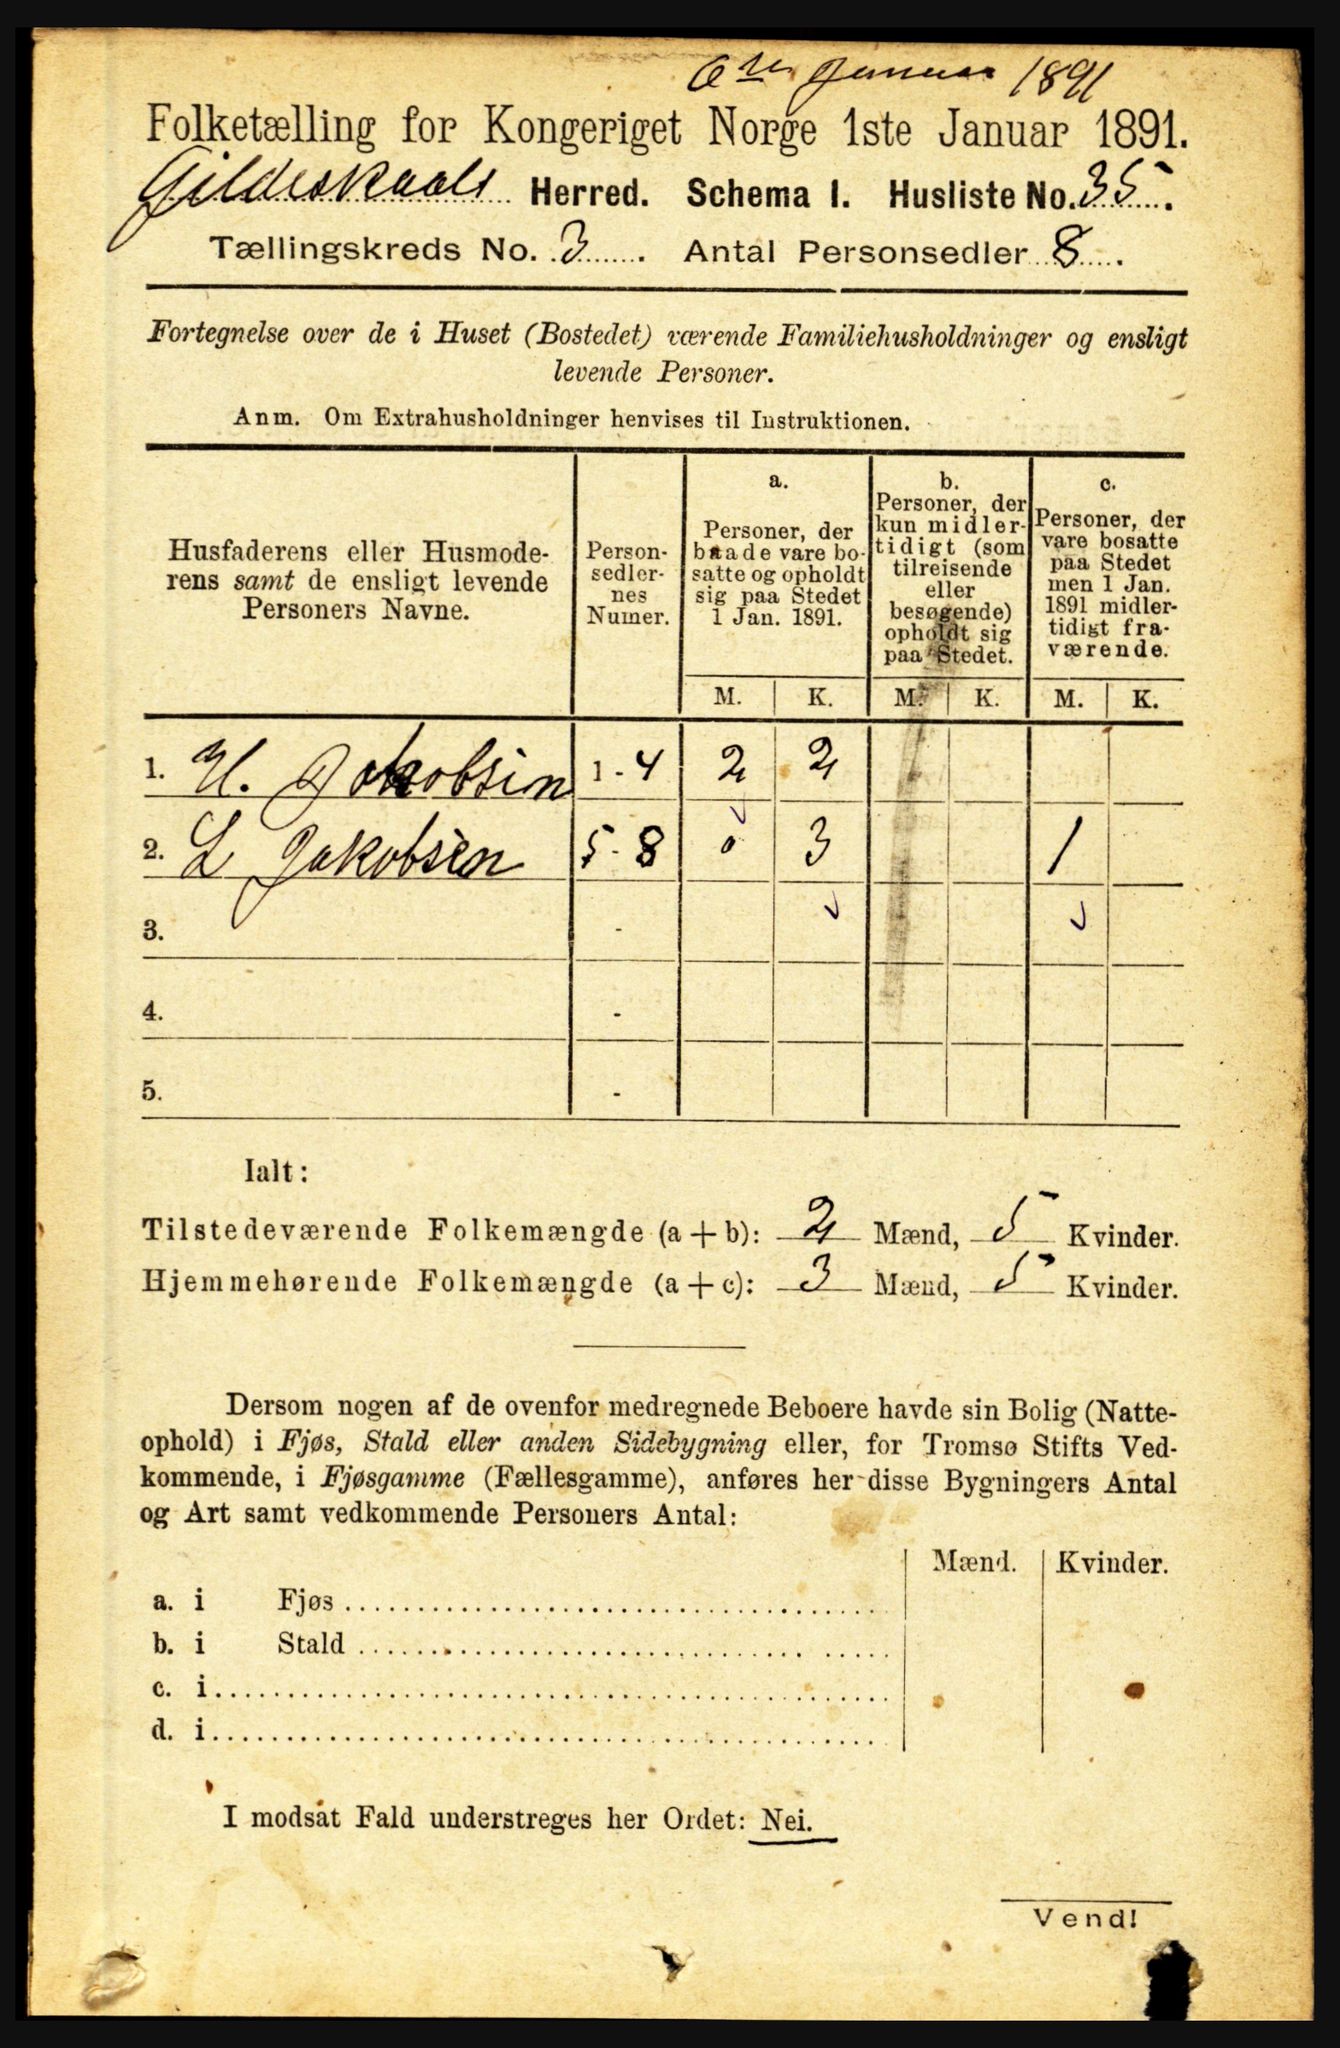 6te Januar 1891
Folketælling for Kongeriget Norge 1ste Januar 1891.
Gildeskaals Herred. Schema I. Husliste No. 35.
Tællingskreds No. 3. Antal Personsedler 8.
Fortegnelse over de i Huset (Bostedet) værende Familiehusholdninger og ensligt
levende Personer.
Anm. Om Extrahusholdninger henvises til Instruktionen.
Husfaderens eller Husmode-
rens samt de ensligt levende
Personers Navne.
Person-
sedler-
nes
Numer.
a.
Personer, der
baade vare bo-
satte og opholdt
sig paa Stedet
1 Jan. 1891.
b.
Personer, der
kun midler-
tidigt (som
tilreisende
eller
besøgende)
opholdt sig
paa Stedet.
c.
Personer, der
vare bosatte
paa Stedet
men 1 Jan.
1891 midler-
tidigt fra-
værende.
M. K. M. K. M. K.
1. H. Jakobsen 1 - 4 2 2
2. L Jakobsen 5 - 8 0 3 1
3. -
4. -
5. -
Ialt:
Tilstedeværende Folkemængde (a + b): 2 Mænd, 5 Kvinder.
Hjemmehørende Folkemængde (a + c): 3 Mænd, 5 Kvinder.
Dersom nogen af de ovenfor medregnede Beboere havde sin Bolig (Natte-
ophold) i Fjøs, Stald eller anden Sidebygning eller, for Tromsø Stifts Ved-
kommende, i Fjøsgamme (Fællesgamme), anføres her disse Bygningers Antal
og Art samt vedkommende Personers Antal:
Mænd. Kvinder.
a. i Fjøs
b. i Stald
c. i
d. i
I modsat Fald understreges her Ordet: Nei.
Vend!